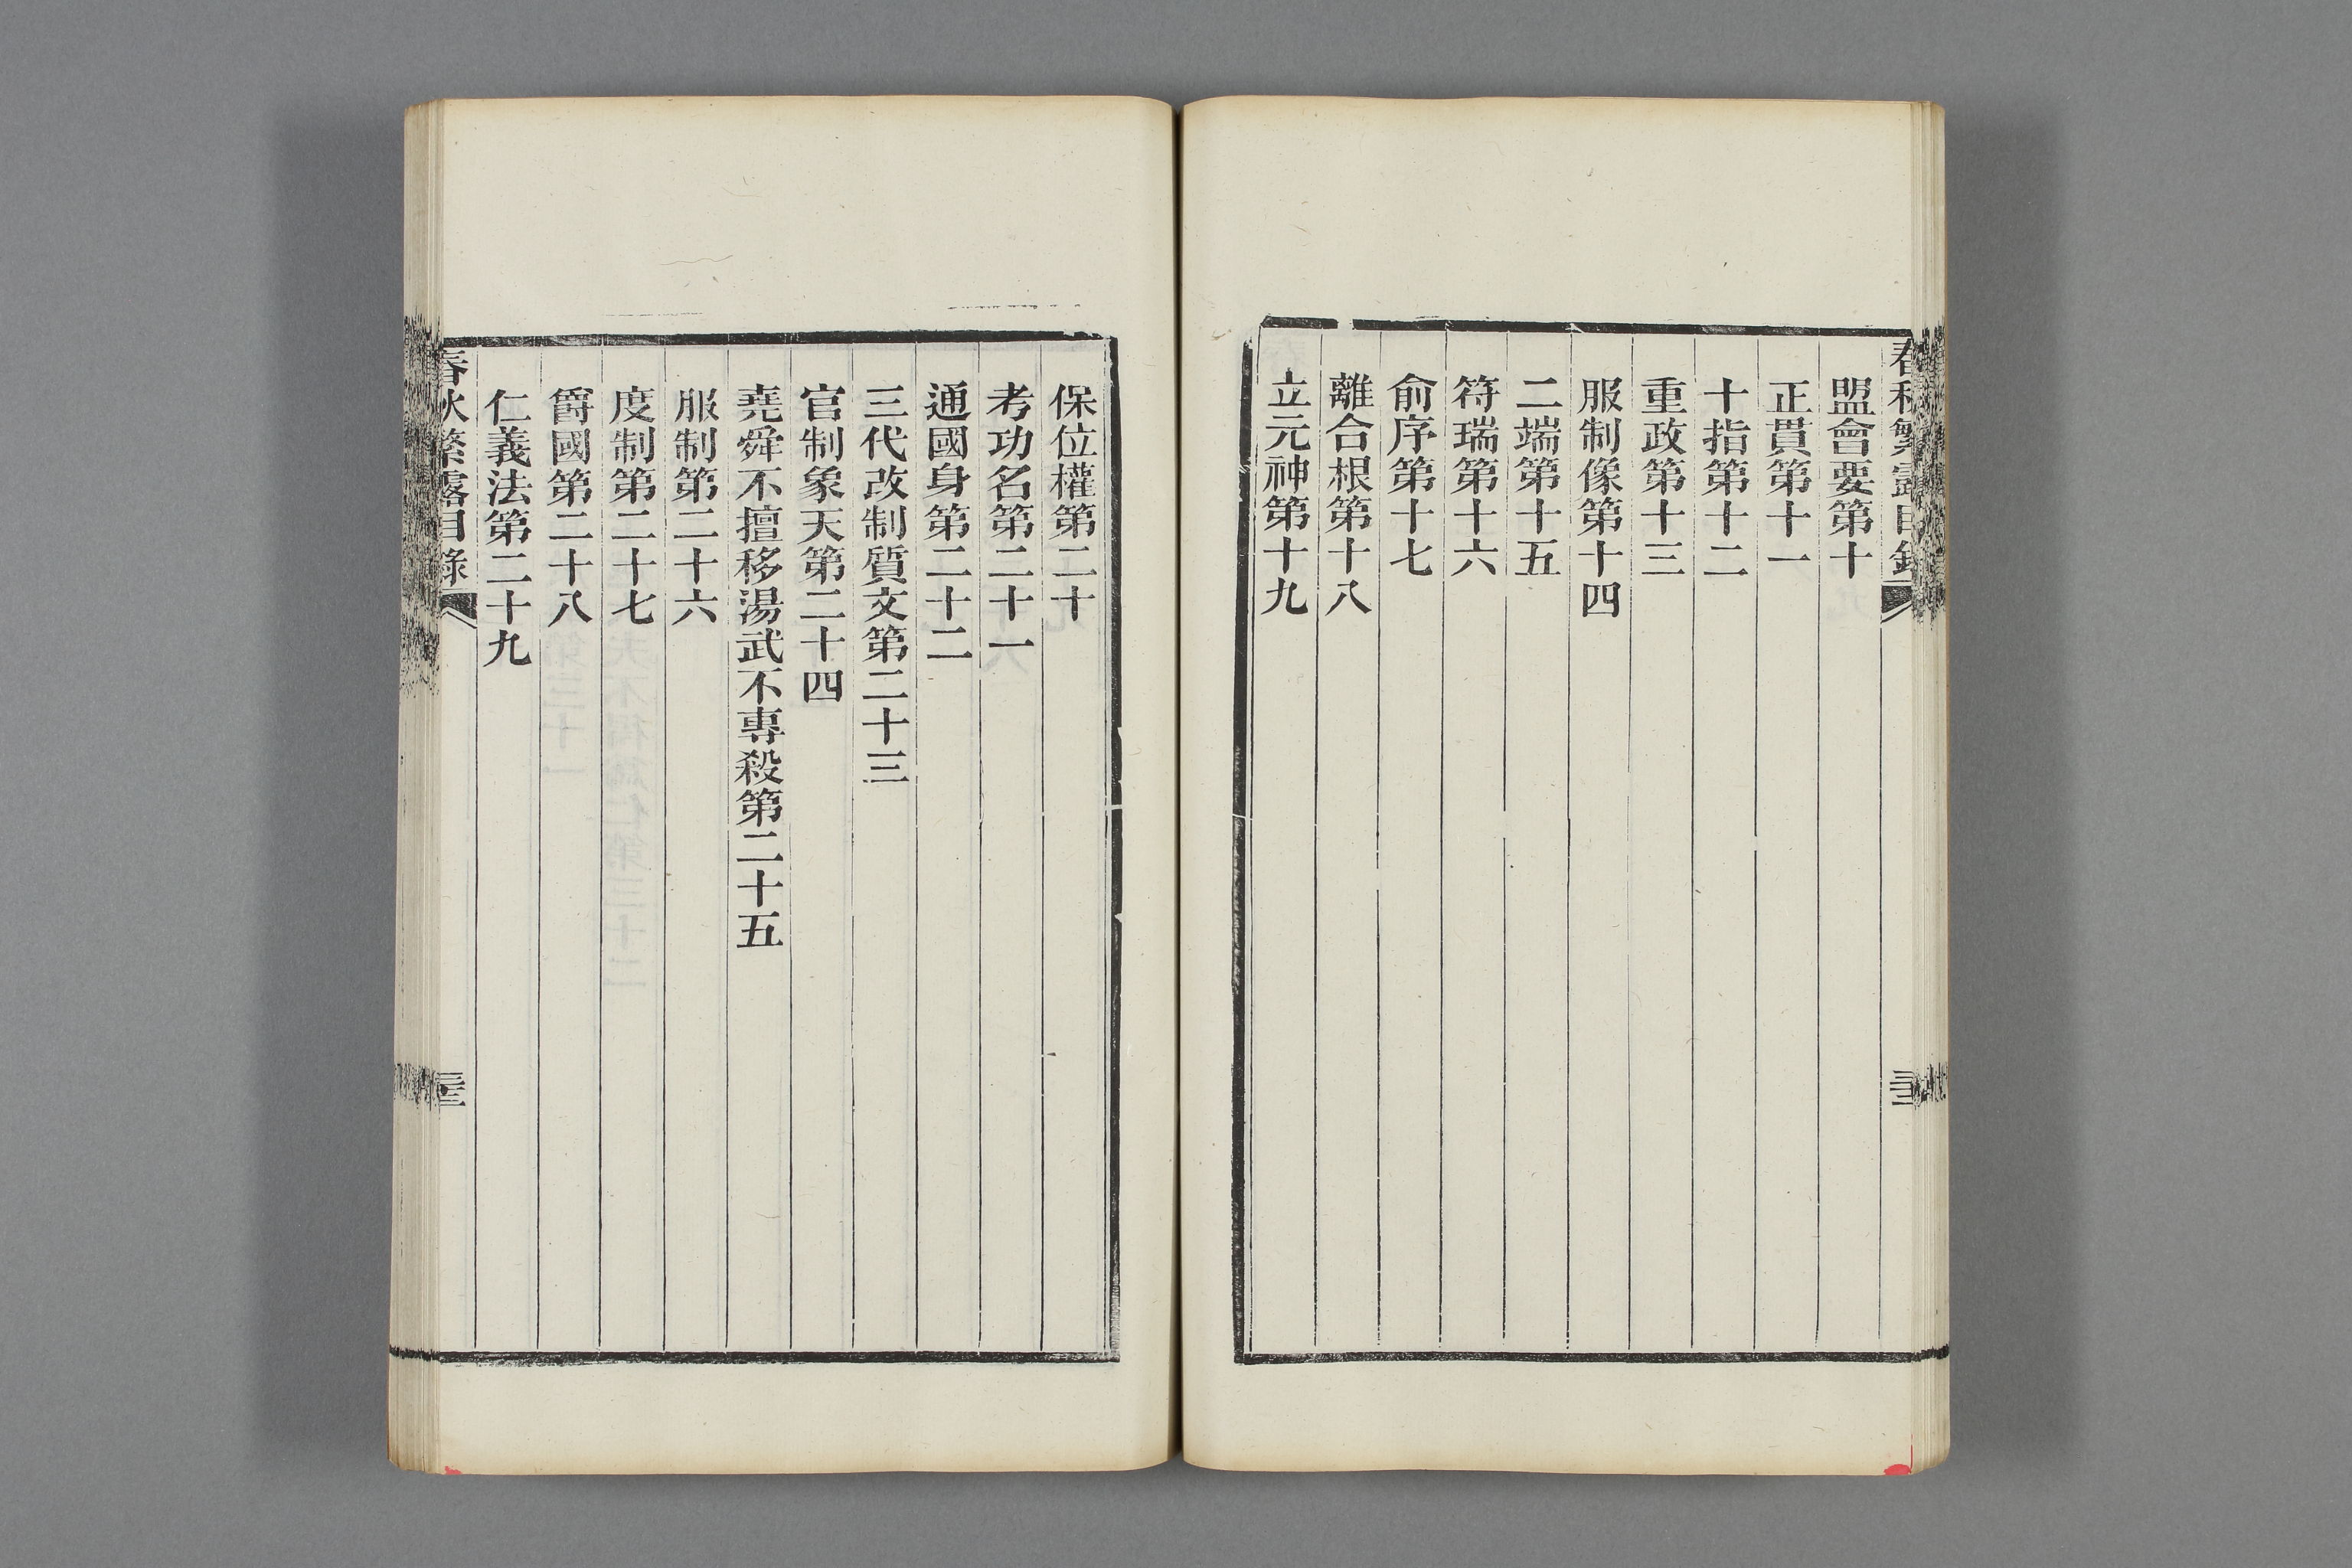 春秋繁露目錄
盟會要第十
正貫第十一
十指第十二
重政第十三
服制像第十四
二端第十五
符瑞第十六
俞序第十七
離合根第十八
立元神第十九
保位權第二十
考功名第二十一
通國身第二十二
三代改制質文第二十三
官制象天第二十四
堯舜不擅移湯武不專殺第二十五
服制第二十六
度制第二十七
爵國第二十八
仁義法第二十九
春秋繁露目錄